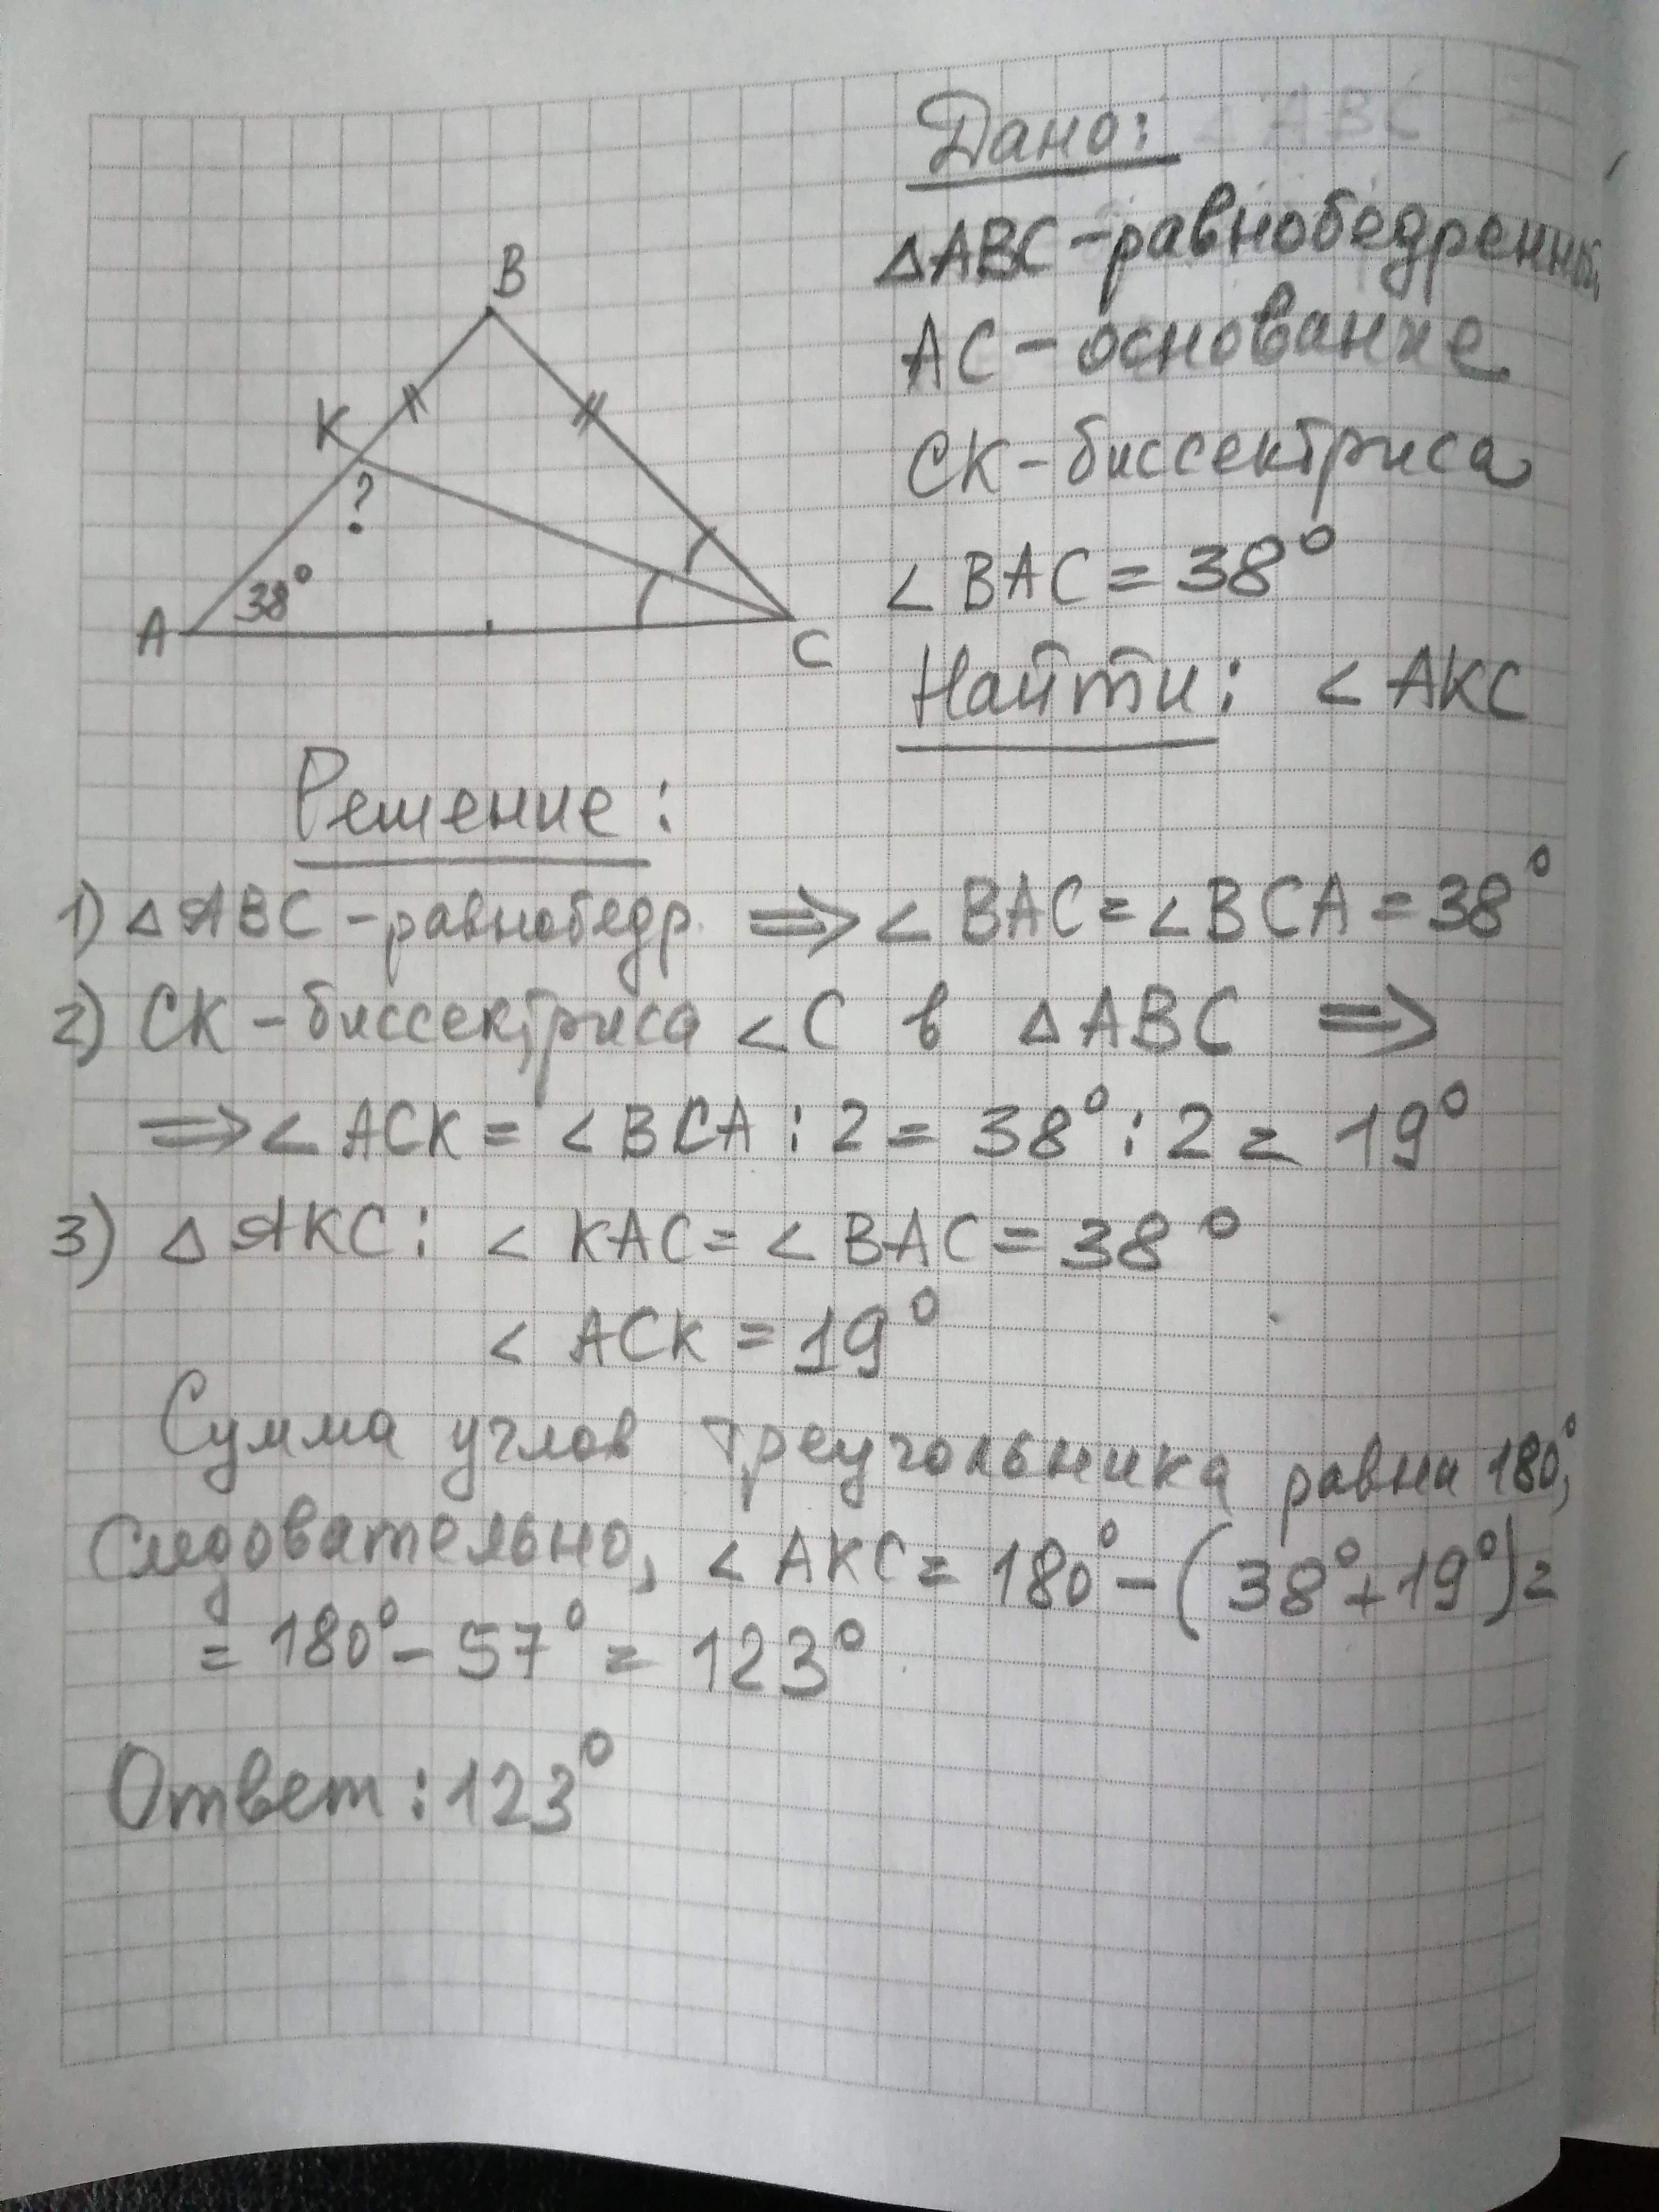 Дано:
△ABC-равнобедренный
AC-основание
CK-биссектриса
∠BAC=38°
Найти: ∠AKC
B
K
?
38°
A
C
Решение:
1) △ABC-равнобедр. ⇒ ∠BAC=∠BCA=38°
2) CK-биссектриса ∠C в △ABC ⇒
⇒ ∠ACK=∠BCA:2=38°:2=19°
3) △AKC: ∠KAC=∠BAC=38°
∠ACK=19°
Сумма углов треугольника равна 180°,
Следовательно, ∠AKC=180°-(38°+19°)=
=180°-57°=123°.
Ответ: 123°